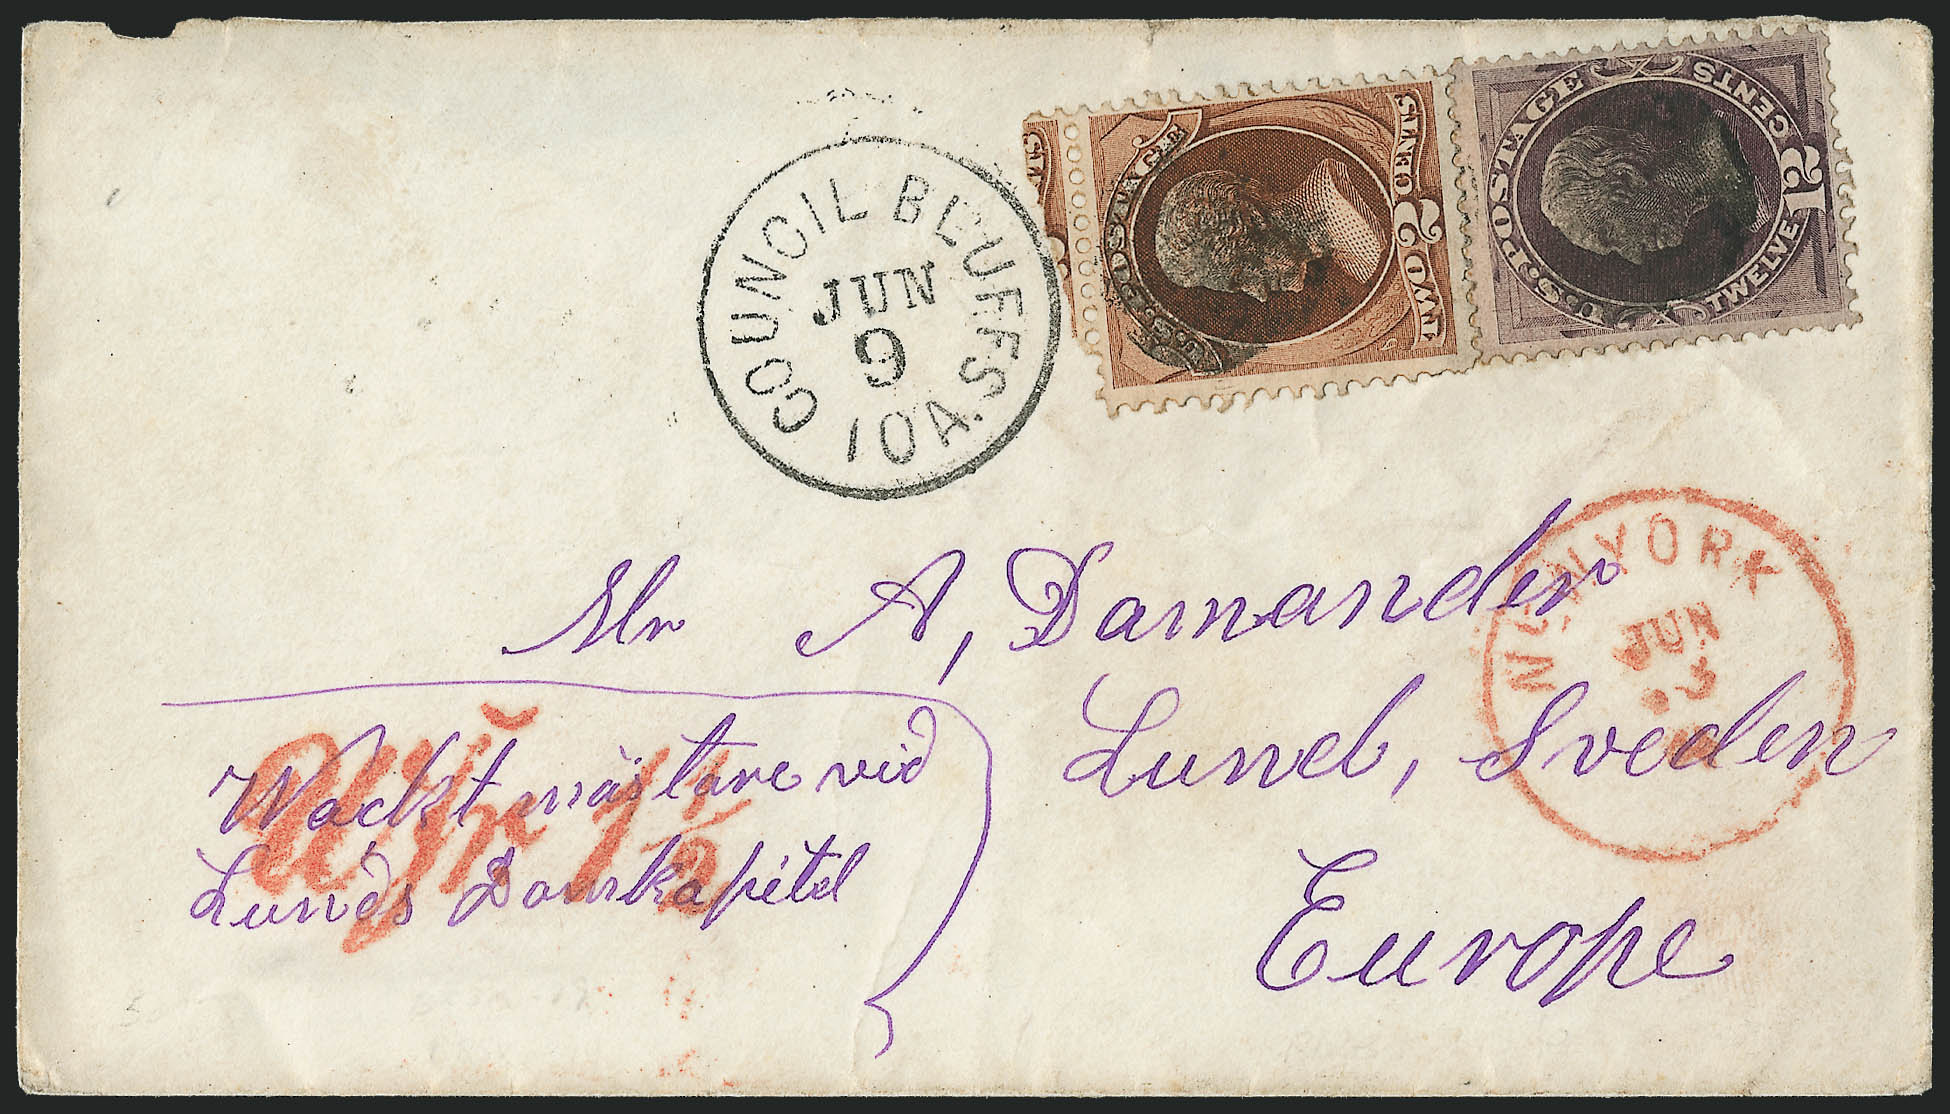 COUNCIL BLUFFS
JUN
9
IOA.
U.S. POSTAGE
TWO 2 CENTS
U.S. POSTAGE
TWELVE 12 CENTS
NEW YORK
JUN
Mr A, Damander
Lund, Sveden
Europe
Wacktmästare vid
Lunds Domkapitel